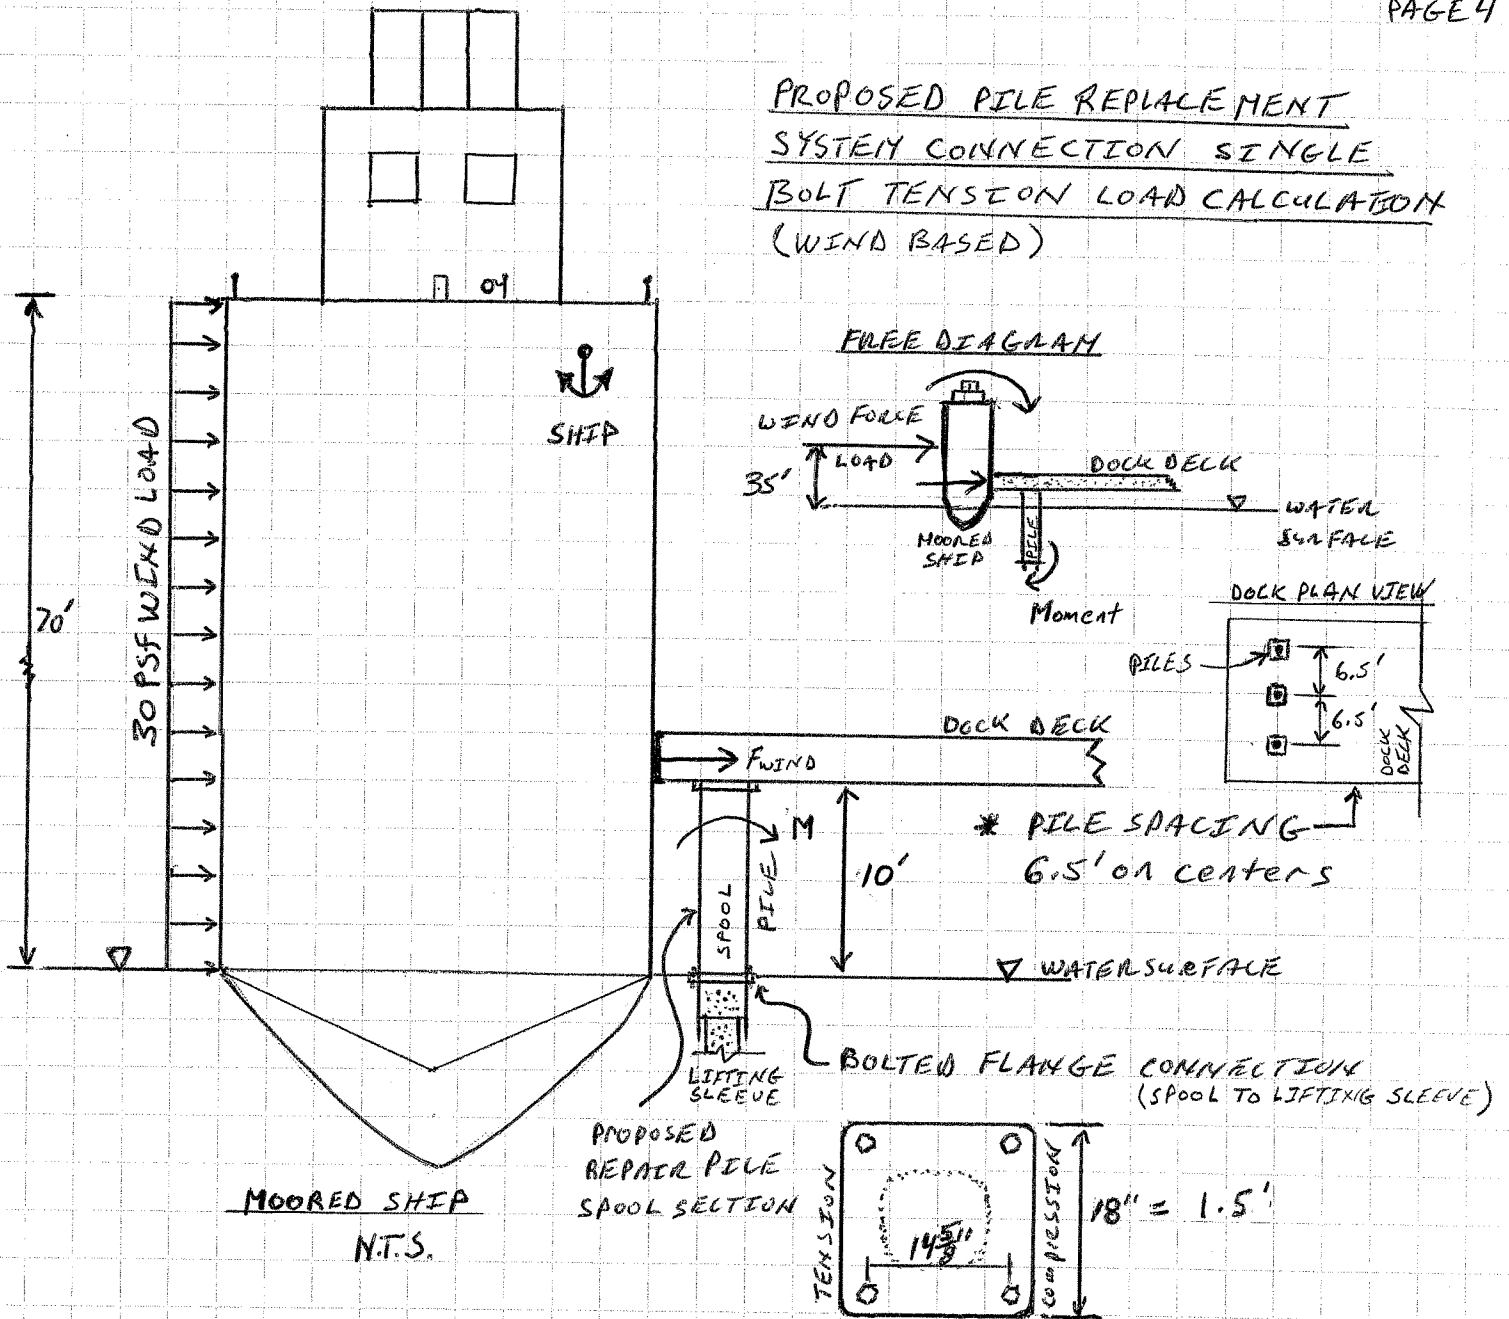 PAGE 4
PROPOSED PILE REPLACEMENT
SYSTEM CONNECTION SINGLE
BOLT TENSION LOAD CALCULATION
(WIND BASED)
04
SHIP
70'
30 PSF WIND LOAD
FREE DIAGRAM
WIND FORCE
LOAD
35'
DOCK DECK
WATER
SURFACE
MOORED
SHIP
PILE
Moment
DOCK PLAN VIEW
PILES
6.5'
6.5'
DOCK
DECK
DOCK DECK
FWIND
M
10'
SPOOL
PILE
* PILE SPACING
6.5' on centers
WATER SURFACE
LIFTING
SLEEVE
BOLTED FLANGE CONNECTION
(SPOOL TO LIFTING SLEEVE)
PROPOSED
REPAIR PILE
SPOOL SECTION
MOORED SHIP
N.T.S.
TENSION
14 5/8"
COMPRESSION
18" = 1.5'